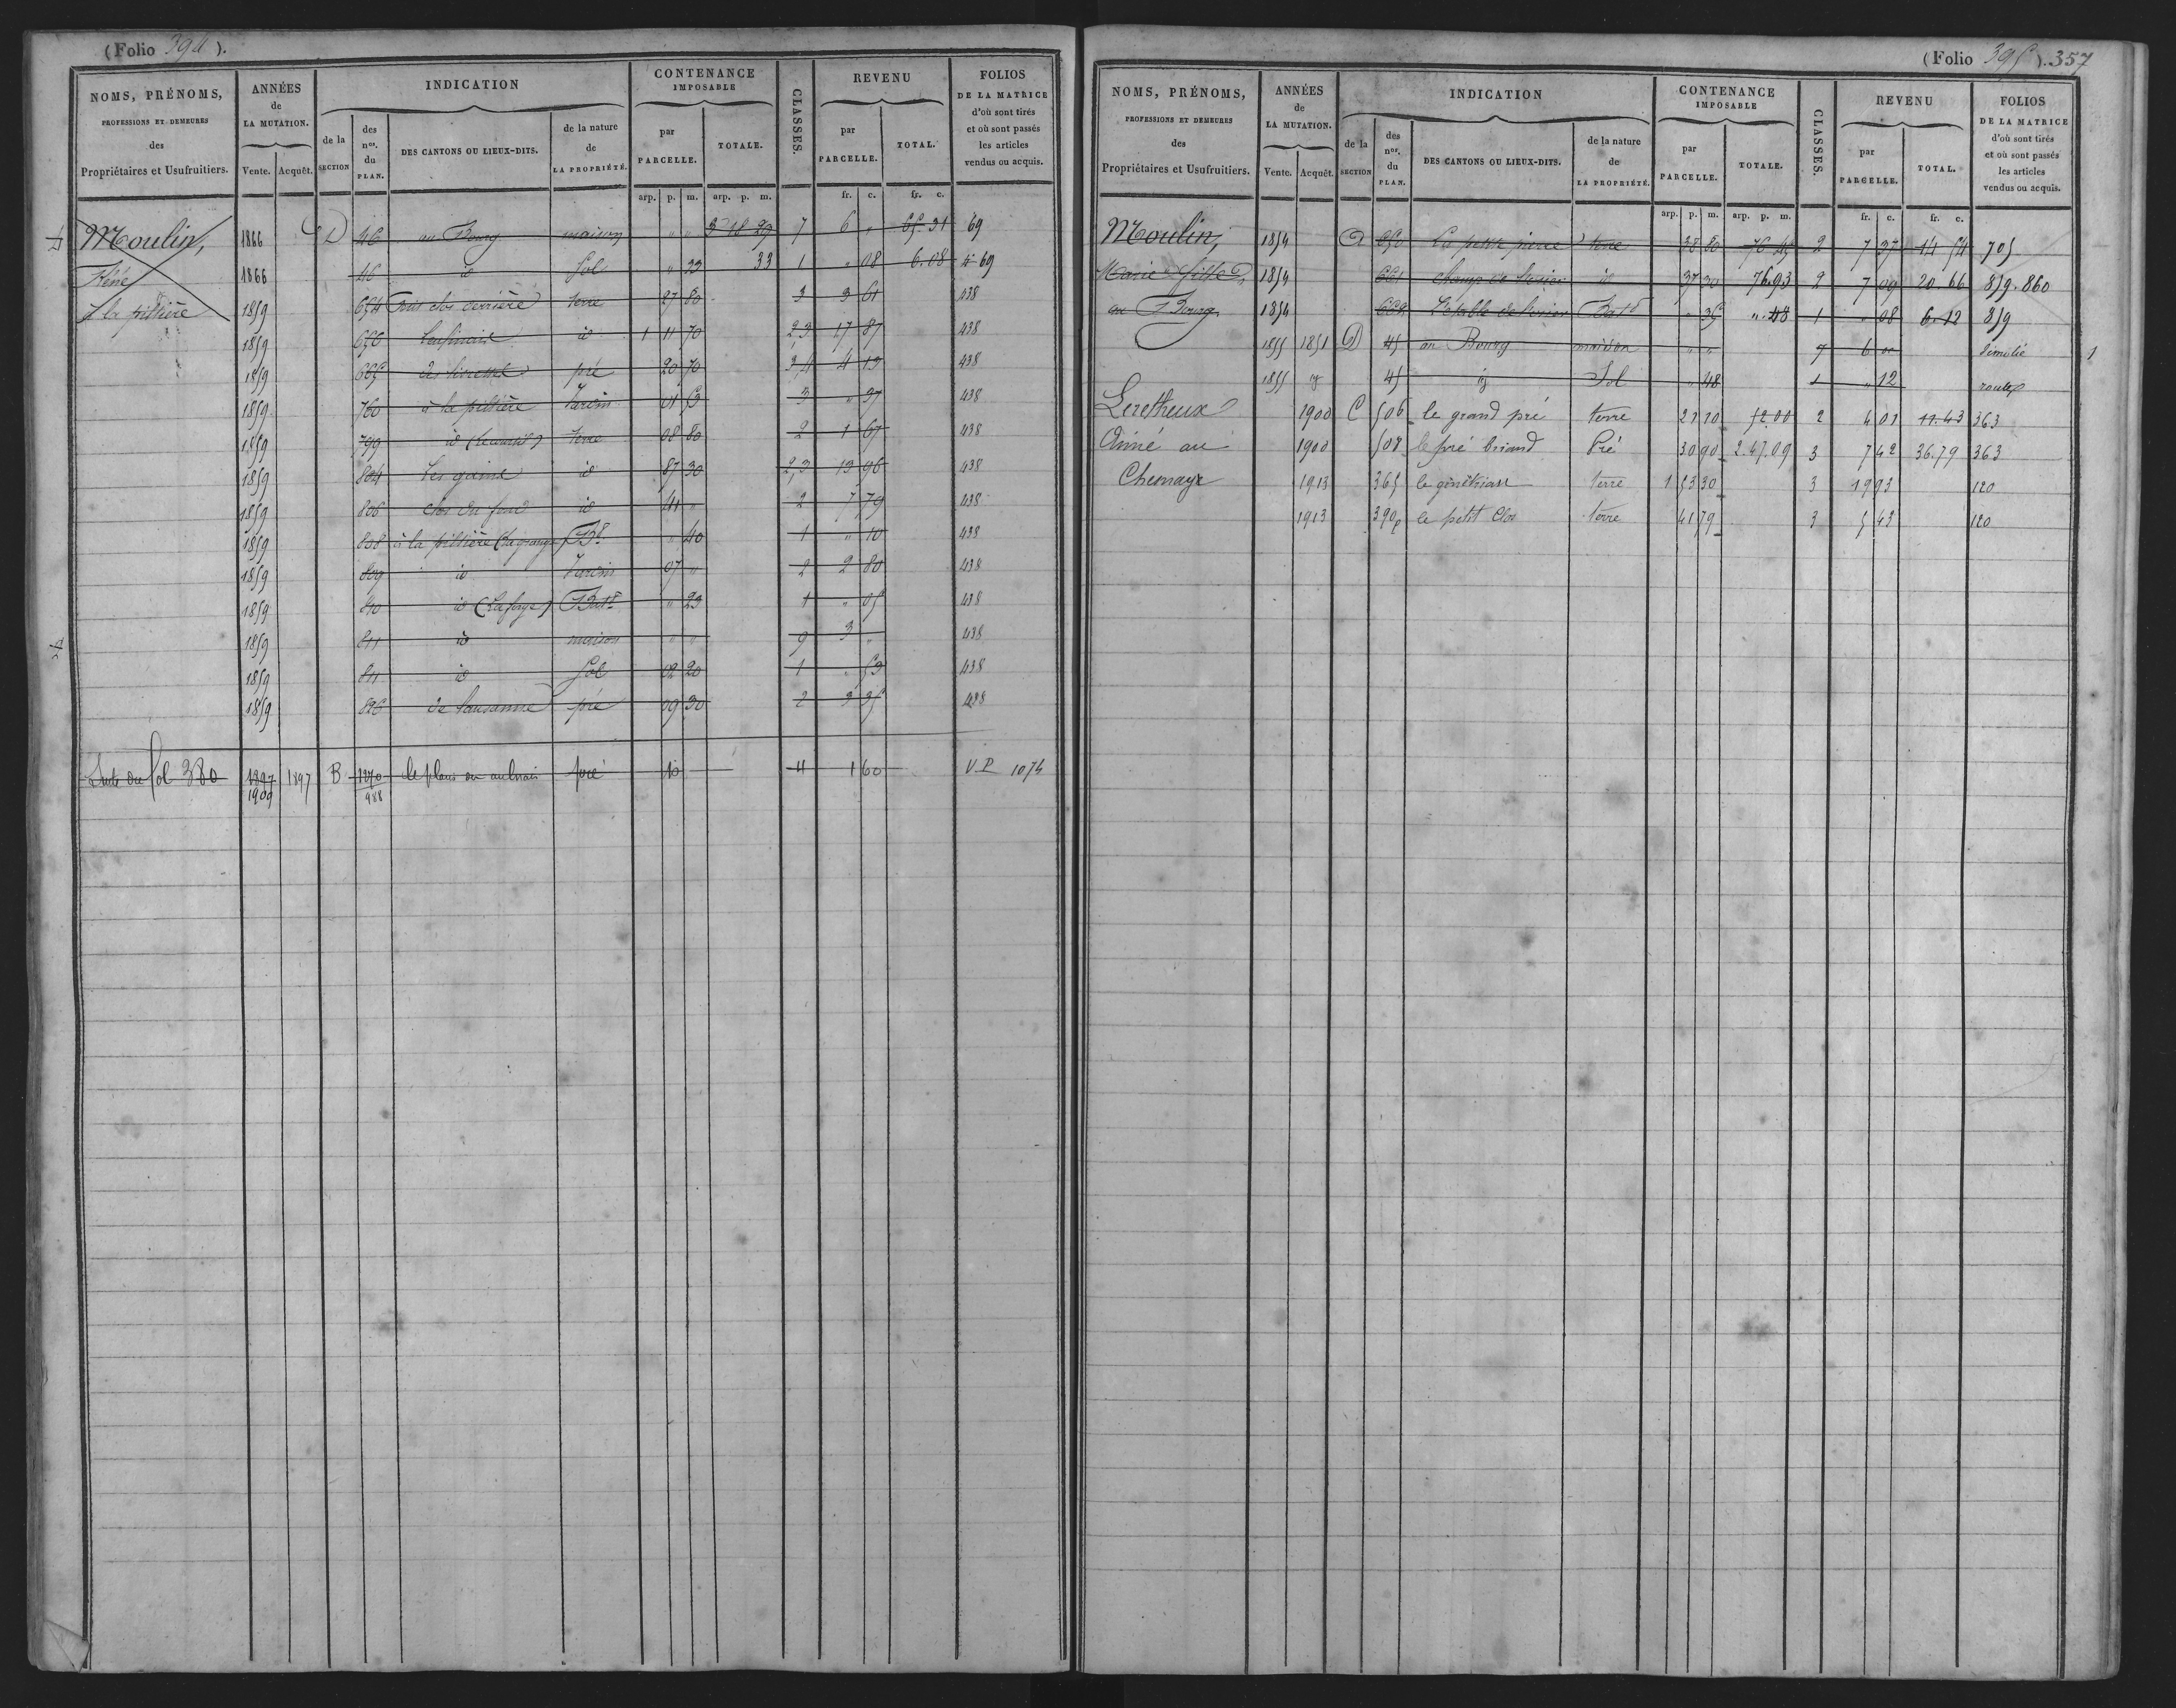 (Folio 394).
NOMS, PRÉNOMS, PROFESSIONS ET DEMEURES des Propriétaires et Usufruitiers.
ANNÉES de LA MUTATION. Vente. Acquêt.
INDICATION de la SECTION des nos. du PLAN. DES CANTONS OU LIEUX-DITS. de la nature de LA PROPRIÉTÉ.
CONTENANCE IMPOSABLE par PARCELLE. TOTALE.
CLASSES.
REVENU par PARCELLE. TOTAL.
FOLIOS DE LA MATRICE d'où sont tirés et où sont passés les articles vendus ou acquis.
arp. p. m. arp. p. m. fr. c. fr. c.
Moulin, 1866 D 46 au Bourg maison " " 3 18 39 7 6 " 65.31 69
René 1866 46 id Sol " 33 33 1 " 08 6.08 69
à la piltière 1859 654 clos derrière terre 27 80 3 3 61 438
1859 656 id 1 11 70 2,3 17 87 438
1859 665 pré 20 70 3,4 4 13 438
1859 760 à la piltière Jardin 01 53 3 " 37 438
1859 799 id terre 08 80 2 1 67 438
1859 804 id 87 30 2,3 13 96 438
1859 806 clos du id 41 " 2 7 79 438
1859 808 à la piltière (la grange) Bt " 40 1 " 10 438
1859 809 id Jardin 07 " 2 2 80 438
1859 810 id (La forge) Batt " 23 1 " 05 438
1859 811 id maison " " 9 3 " 438
1859 811 id Sol 02 20 1 . 53 438
1859 826 pré 09 30 2 3 35 438
Suite du fol 380 1897 1909 1897 B 1270 988 le plans pré 10 4 1 60 V.P 1074
(Folio 395). 357
NOMS, PRÉNOMS, PROFESSIONS ET DEMEURES des Propriétaires et Usufruitiers.
ANNÉES de LA MUTATION. Vente. Acquêt.
INDICATION de la SECTION des nos. du PLAN. DES CANTONS OU LIEUX-DITS. de la nature de LA PROPRIÉTÉ.
CONTENANCE IMPOSABLE par PARCELLE. TOTALE.
CLASSES.
REVENU par PARCELLE. TOTAL.
FOLIOS DE LA MATRICE d'où sont tirés et où sont passés les articles vendus ou acquis.
arp. p. m. arp. p. m. fr. c. fr. c.
Moulin, 1854 D 650 La petite pierre terre 38 80 76 45 2 7 37 14 54 705
Marie 1854 661 champ de id 37 30 76.93 2 7 09 20 66 859.860
au Bourg 1854 662 Batt " 35 ". 48 1 " 08 6.12 859
1855 1851 D 45 au Bourg maison " " 7 6 00 démolie 1
1855 id 45 id Sol " 48 1 " 12 route
Leretheux 1900 C 506 le grand pré terre 21 10 52 00 2 4 01 11.43 363
Aimé au 1900 508 le pré briand Pré 30 90 2.47.09 3 7 42 36.79 363
Chemaye 1913 365 terre 1 53 30 3 19 93 120
1913 390p le petit Clos terre 41 79 3 5 43 120